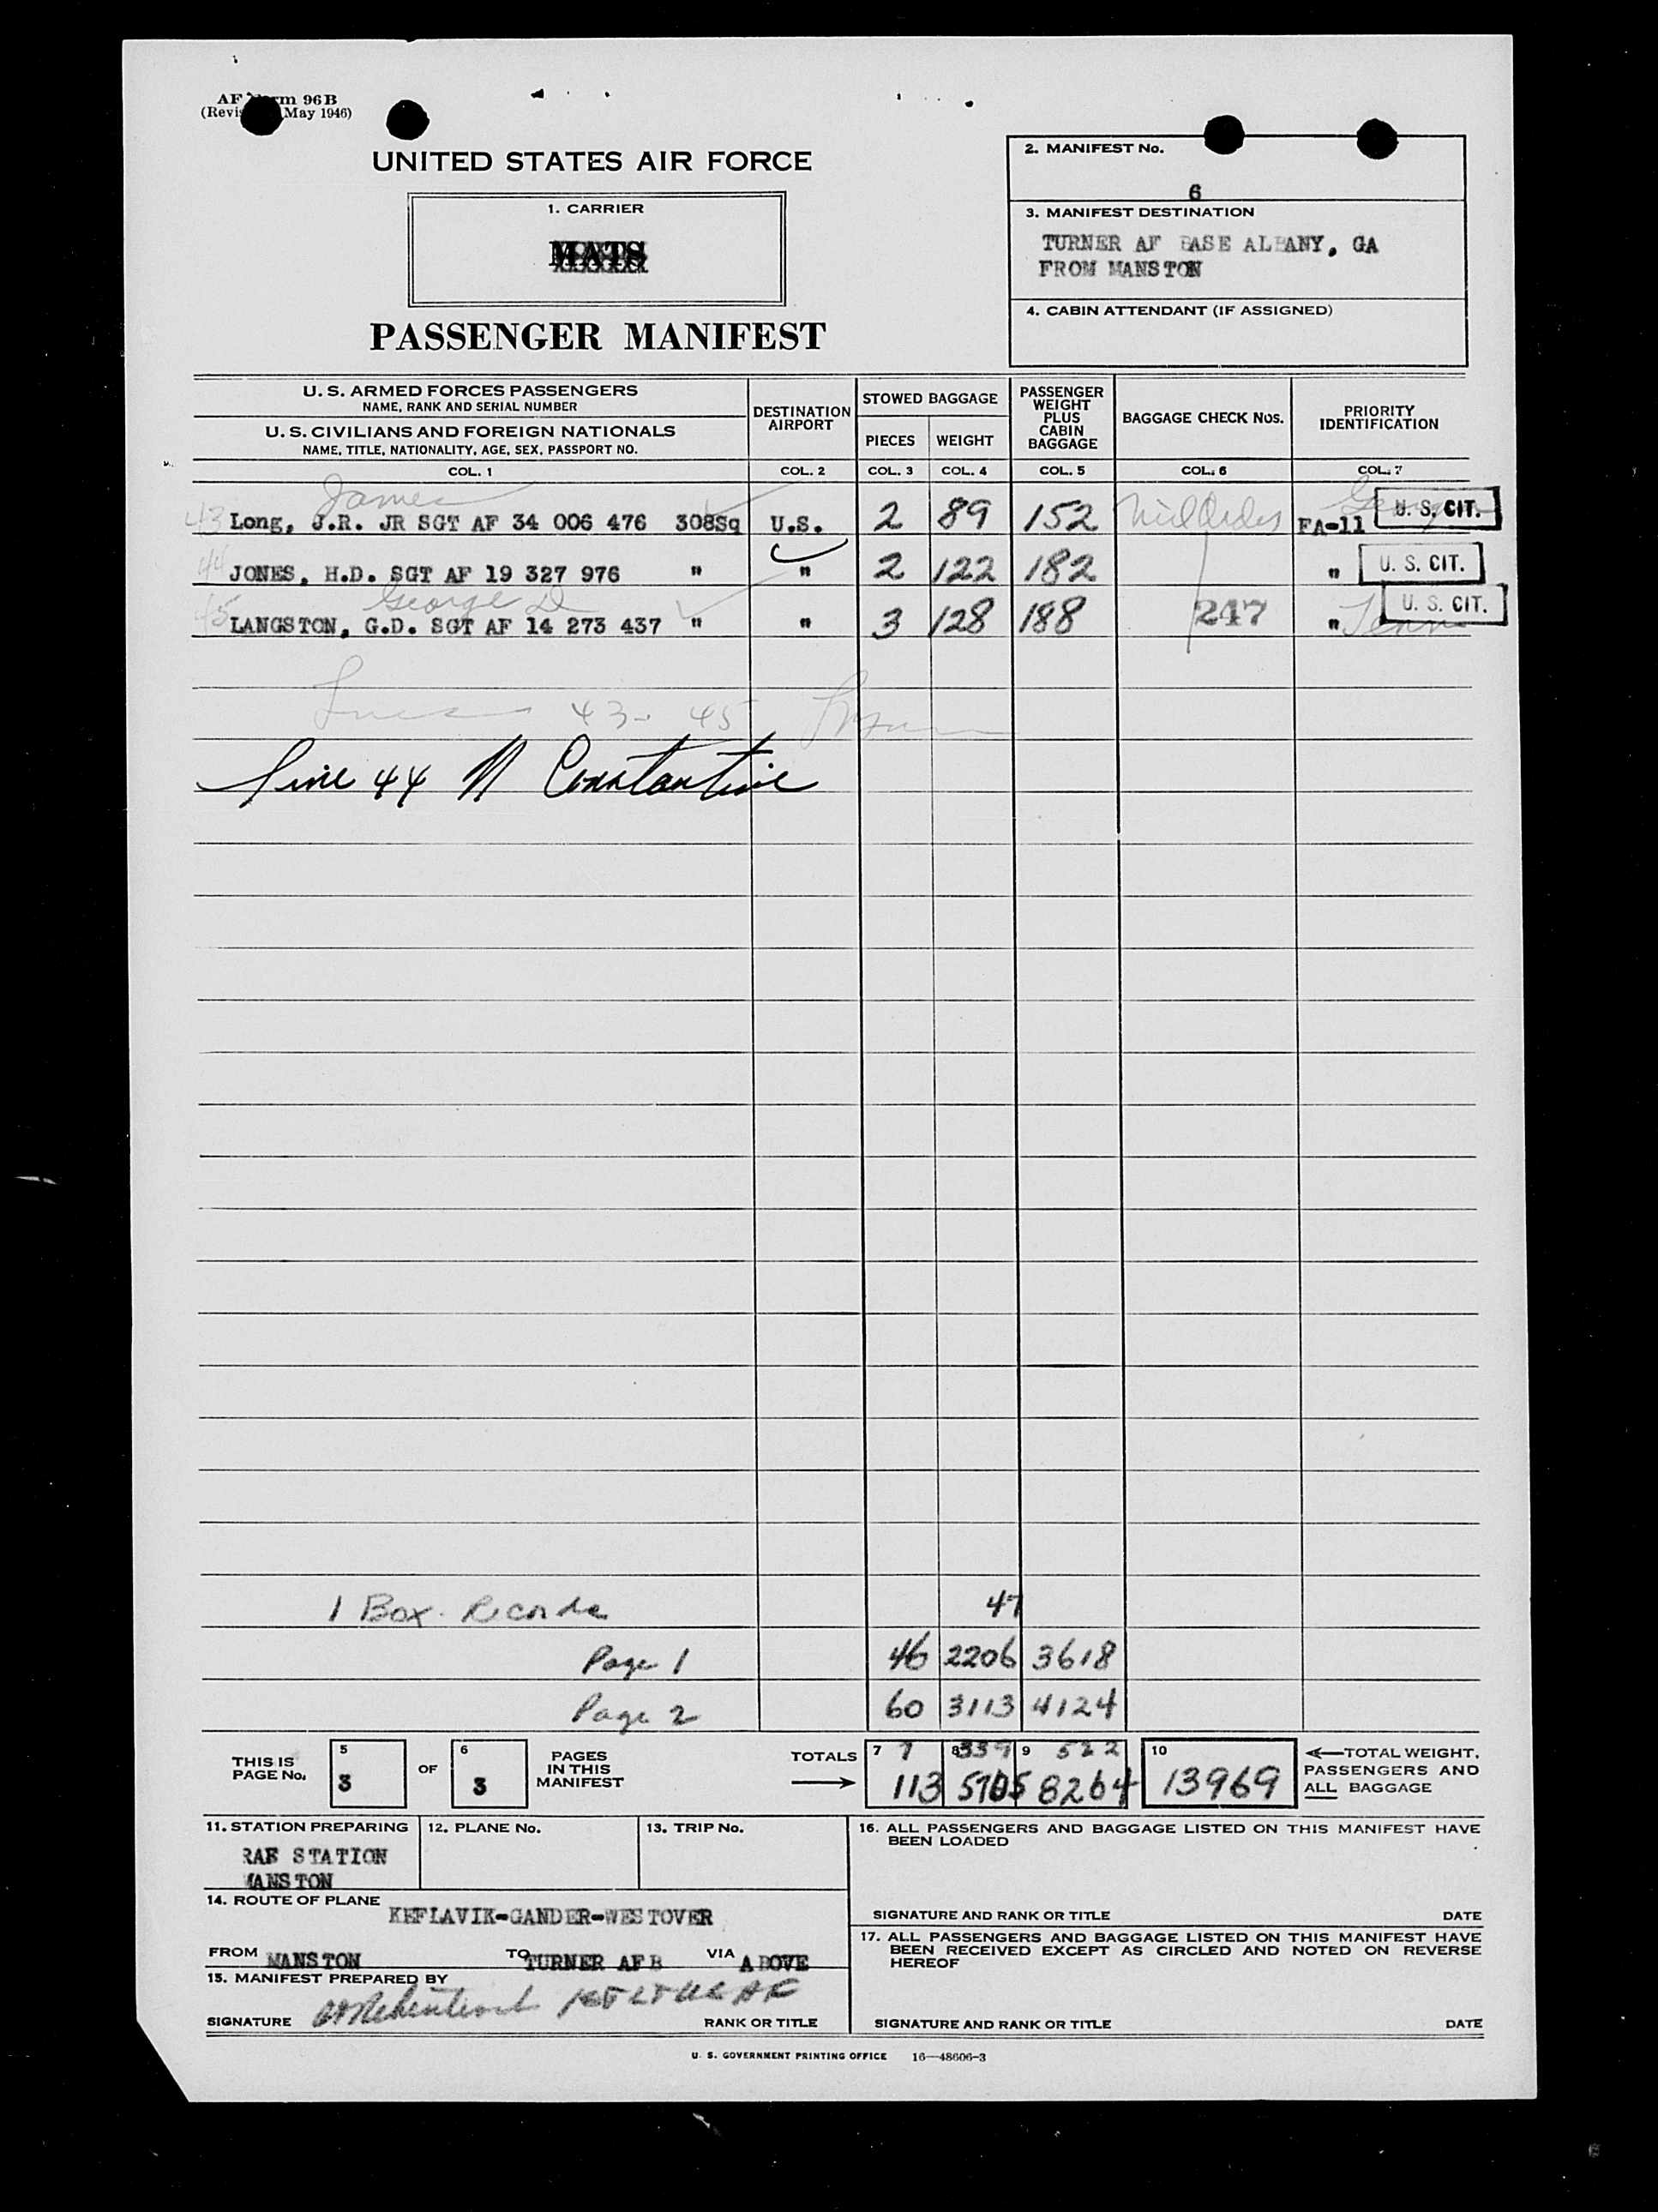 AF Form 96B
(Revised May 1946)
UNITED STATES AIR FORCE
1. CARRIER
MATS
PASSENGER MANIFEST
2. MANIFEST No.
6
3. MANIFEST DESTINATION
TURNER AF BASE ALBANY, GA
FROM MANSTON
4. CABIN ATTENDANT (IF ASSIGNED)
U. S. ARMED FORCES PASSENGERS
NAME, RANK AND SERIAL NUMBER
U. S. CIVILIANS AND FOREIGN NATIONALS
NAME, TITLE, NATIONALITY, AGE, SEX, PASSPORT NO.
DESTINATION AIRPORT
STOWED BAGGAGE
PIECES WEIGHT
PASSENGER WEIGHT PLUS CABIN BAGGAGE
BAGGAGE CHECK Nos.
PRIORITY IDENTIFICATION
COL. 1 COL. 2 COL. 3 COL. 4 COL. 5 COL. 6 COL. 7
James
43 Long, J.R. JR SGT AF 34 006 476 308Sq U.S. 2 89 152 FA-11 U. S. CIT.
44 JONES, H.D. SGT AF 19 327 976 " " 2 122 182 " U. S. CIT.
George D
45 LANGSTON, G.D. SGT AF 14 273 437 " " 3 128 188 247 " Tenn U. S. CIT.
Lines 43- 45
Line 44 N Constantine
1 Box. Records 47
Page 1 46 2206 3618
Page 2 60 3113 4124
THIS IS PAGE No. 5 3 OF 6 3 PAGES IN THIS MANIFEST
TOTALS 7 7 8 339 9 522
113 5705 8264 10 13969
←TOTAL WEIGHT, PASSENGERS AND ALL BAGGAGE
11. STATION PREPARING
RAF STATION
MANSTON
12. PLANE No.
13. TRIP No.
14. ROUTE OF PLANE
KEFLAVIK-GANDER-WESTOVER
FROM MANSTON TO TURNER AFB VIA ABOVE
15. MANIFEST PREPARED BY
SIGNATURE RANK OR TITLE
16. ALL PASSENGERS AND BAGGAGE LISTED ON THIS MANIFEST HAVE
BEEN LOADED
SIGNATURE AND RANK OR TITLE DATE
17. ALL PASSENGERS AND BAGGAGE LISTED ON THIS MANIFEST HAVE
BEEN RECEIVED EXCEPT AS CIRCLED AND NOTED ON REVERSE
HEREOF
SIGNATURE AND RANK OR TITLE DATE
U. S. GOVERNMENT PRINTING OFFICE 16—48606-3